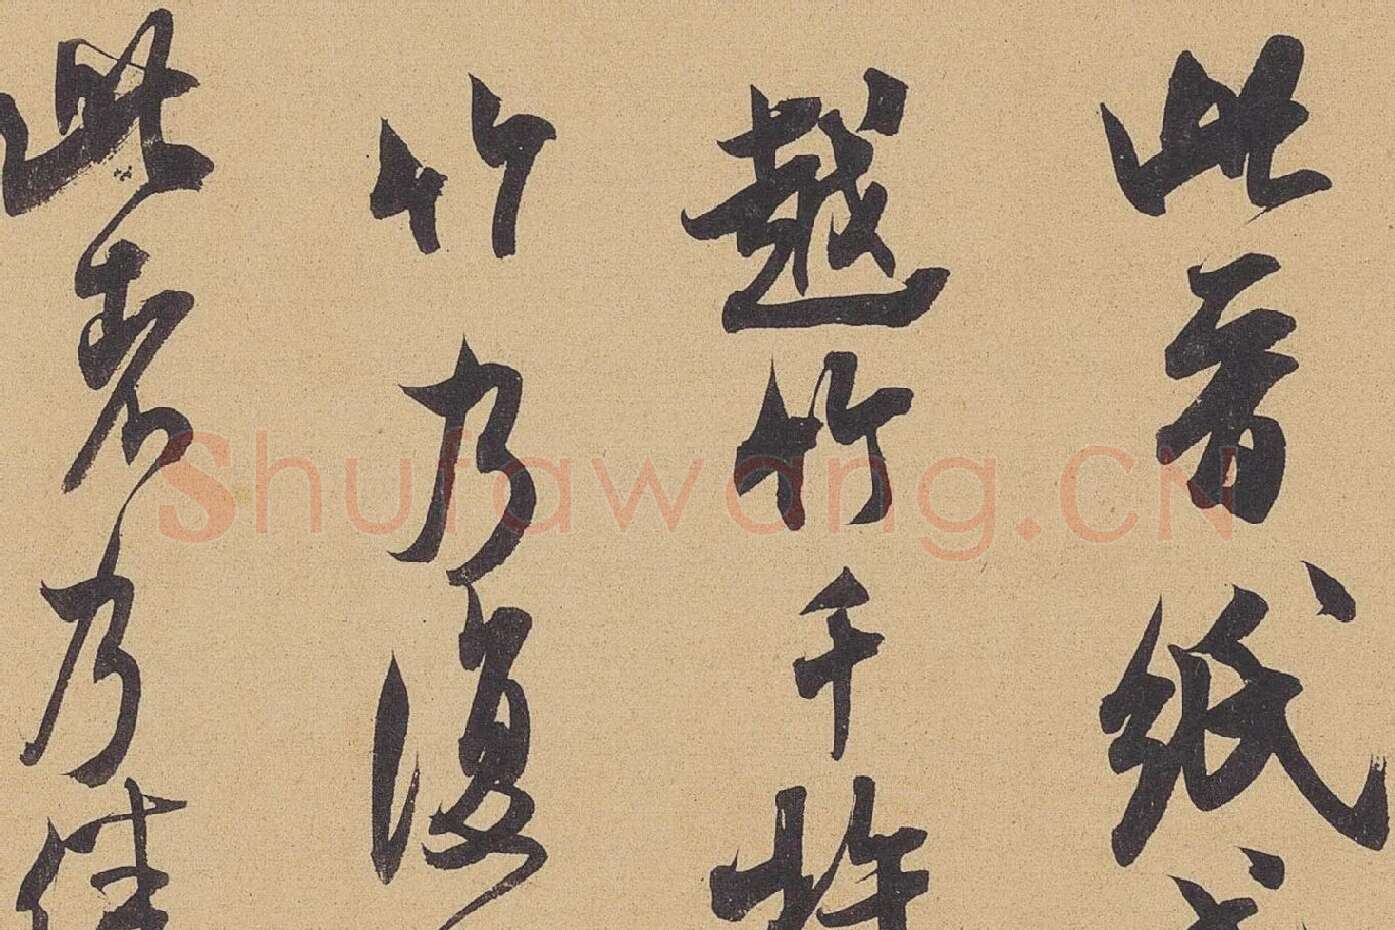 此晋紙式
越竹千杵
竹乃復
此者乃佳
Shufawang.CN